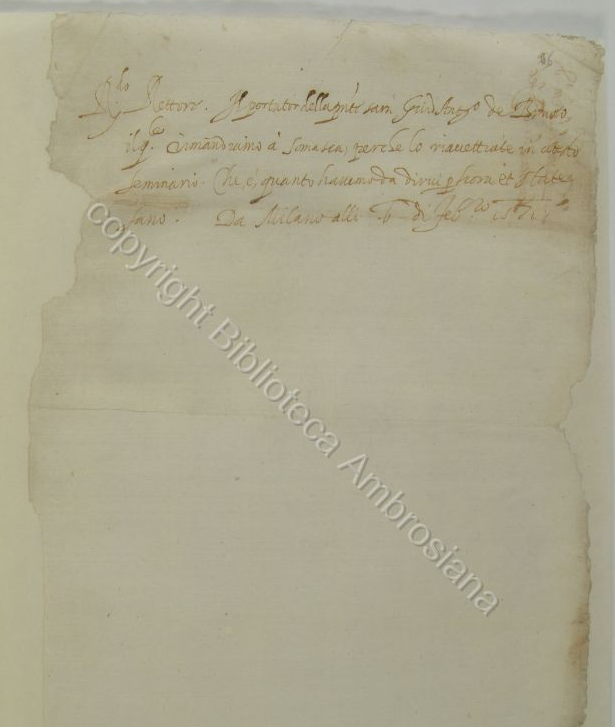 86
R.do Rettore. Il portator della pnte sarà Gio. Ant.o de
il q.le rimandiamo à Somasca, perche lo riaccettiate in cotesto
seminario. Che è, quanto havemo da dirvi p hora et state
sano. Da Milano alli 6 di Feb.ro
copyright Biblioteca Ambrosiana